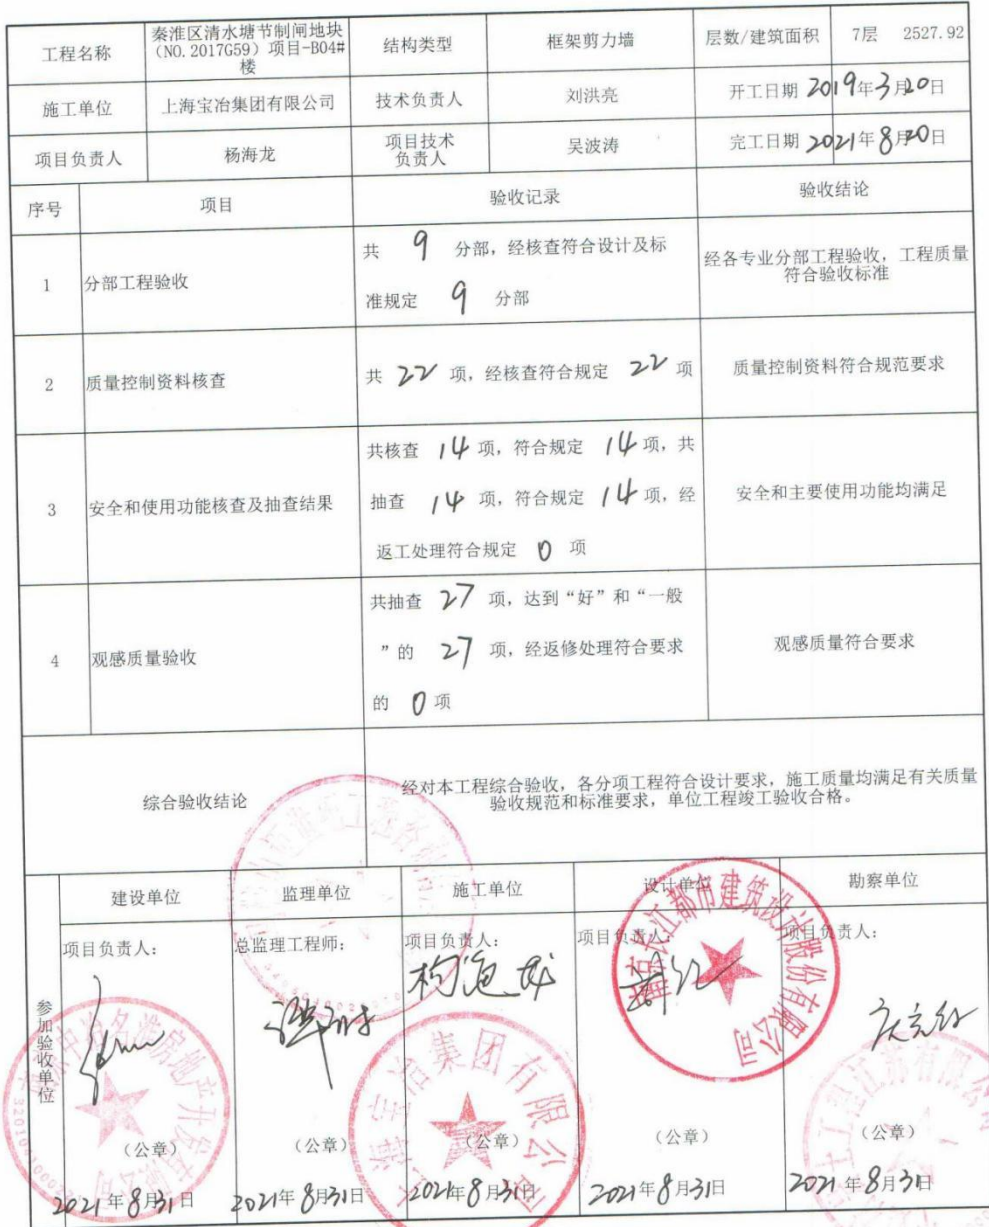 工程名称 秦淮区清水塘节制闸地块
（NO.2017G59）项目-B04#
楼 结构类型 框架剪力墙 层数/建筑面积 7层 2527.92
施工单位 上海宝冶集团有限公司 技术负责人 刘洪亮 开工日期 2019年3月20日
项目负责人 杨海龙 项目技术
负责人 吴波涛 完工日期 2021年8月20日
序号 项目 验收记录 验收结论
1 分部工程验收
共 9 分部，经核查符合设计及标
准规定 9 分部
经各专业分部工程验收，工程质量
符合验收标准
2 质量控制资料核查 共 22 项，经核查符合规定 22 项 质量控制资料符合规范要求
3 安全和使用功能核查及抽查结果
共核查 14 项，符合规定 14 项，共
抽查 14 项，符合规定 14 项，经
返工处理符合规定 0 项
安全和主要使用功能均满足
4 观感质量验收
共抽查 27 项，达到“好”和“一般
”的 27 项，经返修处理符合要求
的 0 项
观感质量符合要求
综合验收结论
经对本工程综合验收，各分项工程符合设计要求，施工质量均满足有关质量
验收规范和标准要求，单位工程竣工验收合格。
参加验收单位
建设单位 监理单位 施工单位 设计单位 勘察单位
项目负责人： 总监理工程师： 项目负责人： 项目负责人： 项目负责人：
南京长江都市建筑设计股份有限公司
上海宝冶集团有限公司
（公章） （公章） （公章） （公章） （公章）
2021年8月31日 2021年8月31日 2021年8月31日 2021年8月31日 2021年8月31日